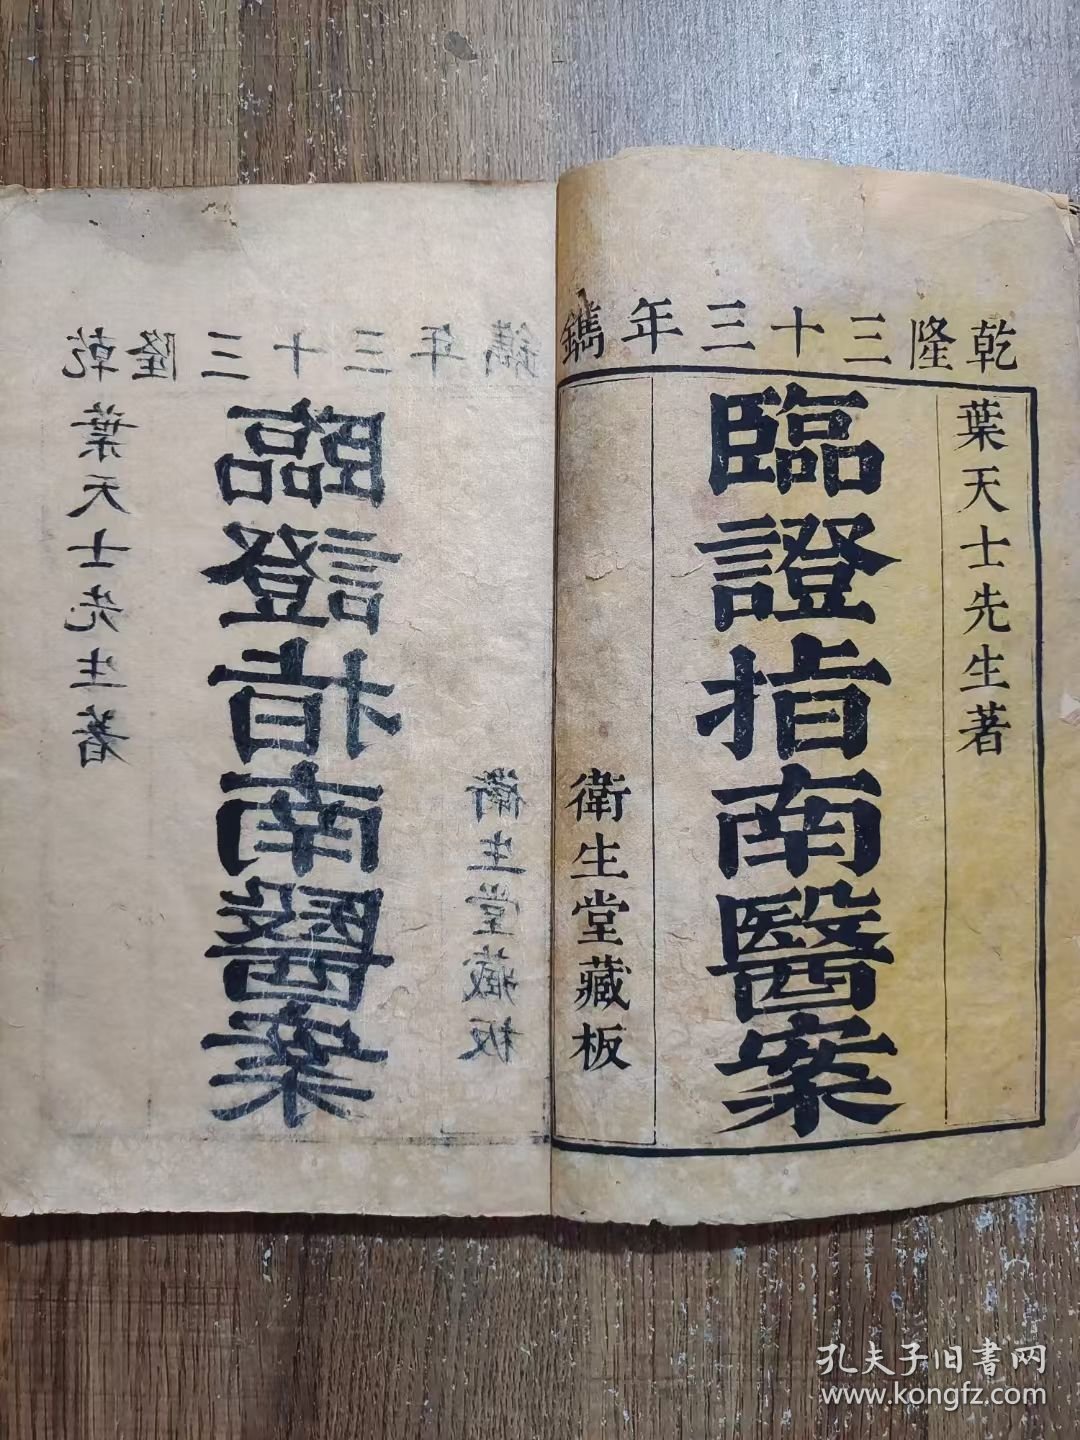 乾隆三十三年鐫
葉天士先生著
臨證指南醫案
衛生堂藏板
孔夫子旧书网
www.kongfz.com